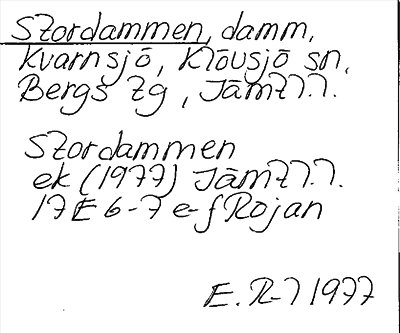 Stordammen, damm,
Kvarnsjö, Klövsjö sn,
Bergs tg, Jämtl.l.
Stordammen
ek (1977) Jämtl.l.
17E 6-7 e-f Rojan
E. R-l 1977